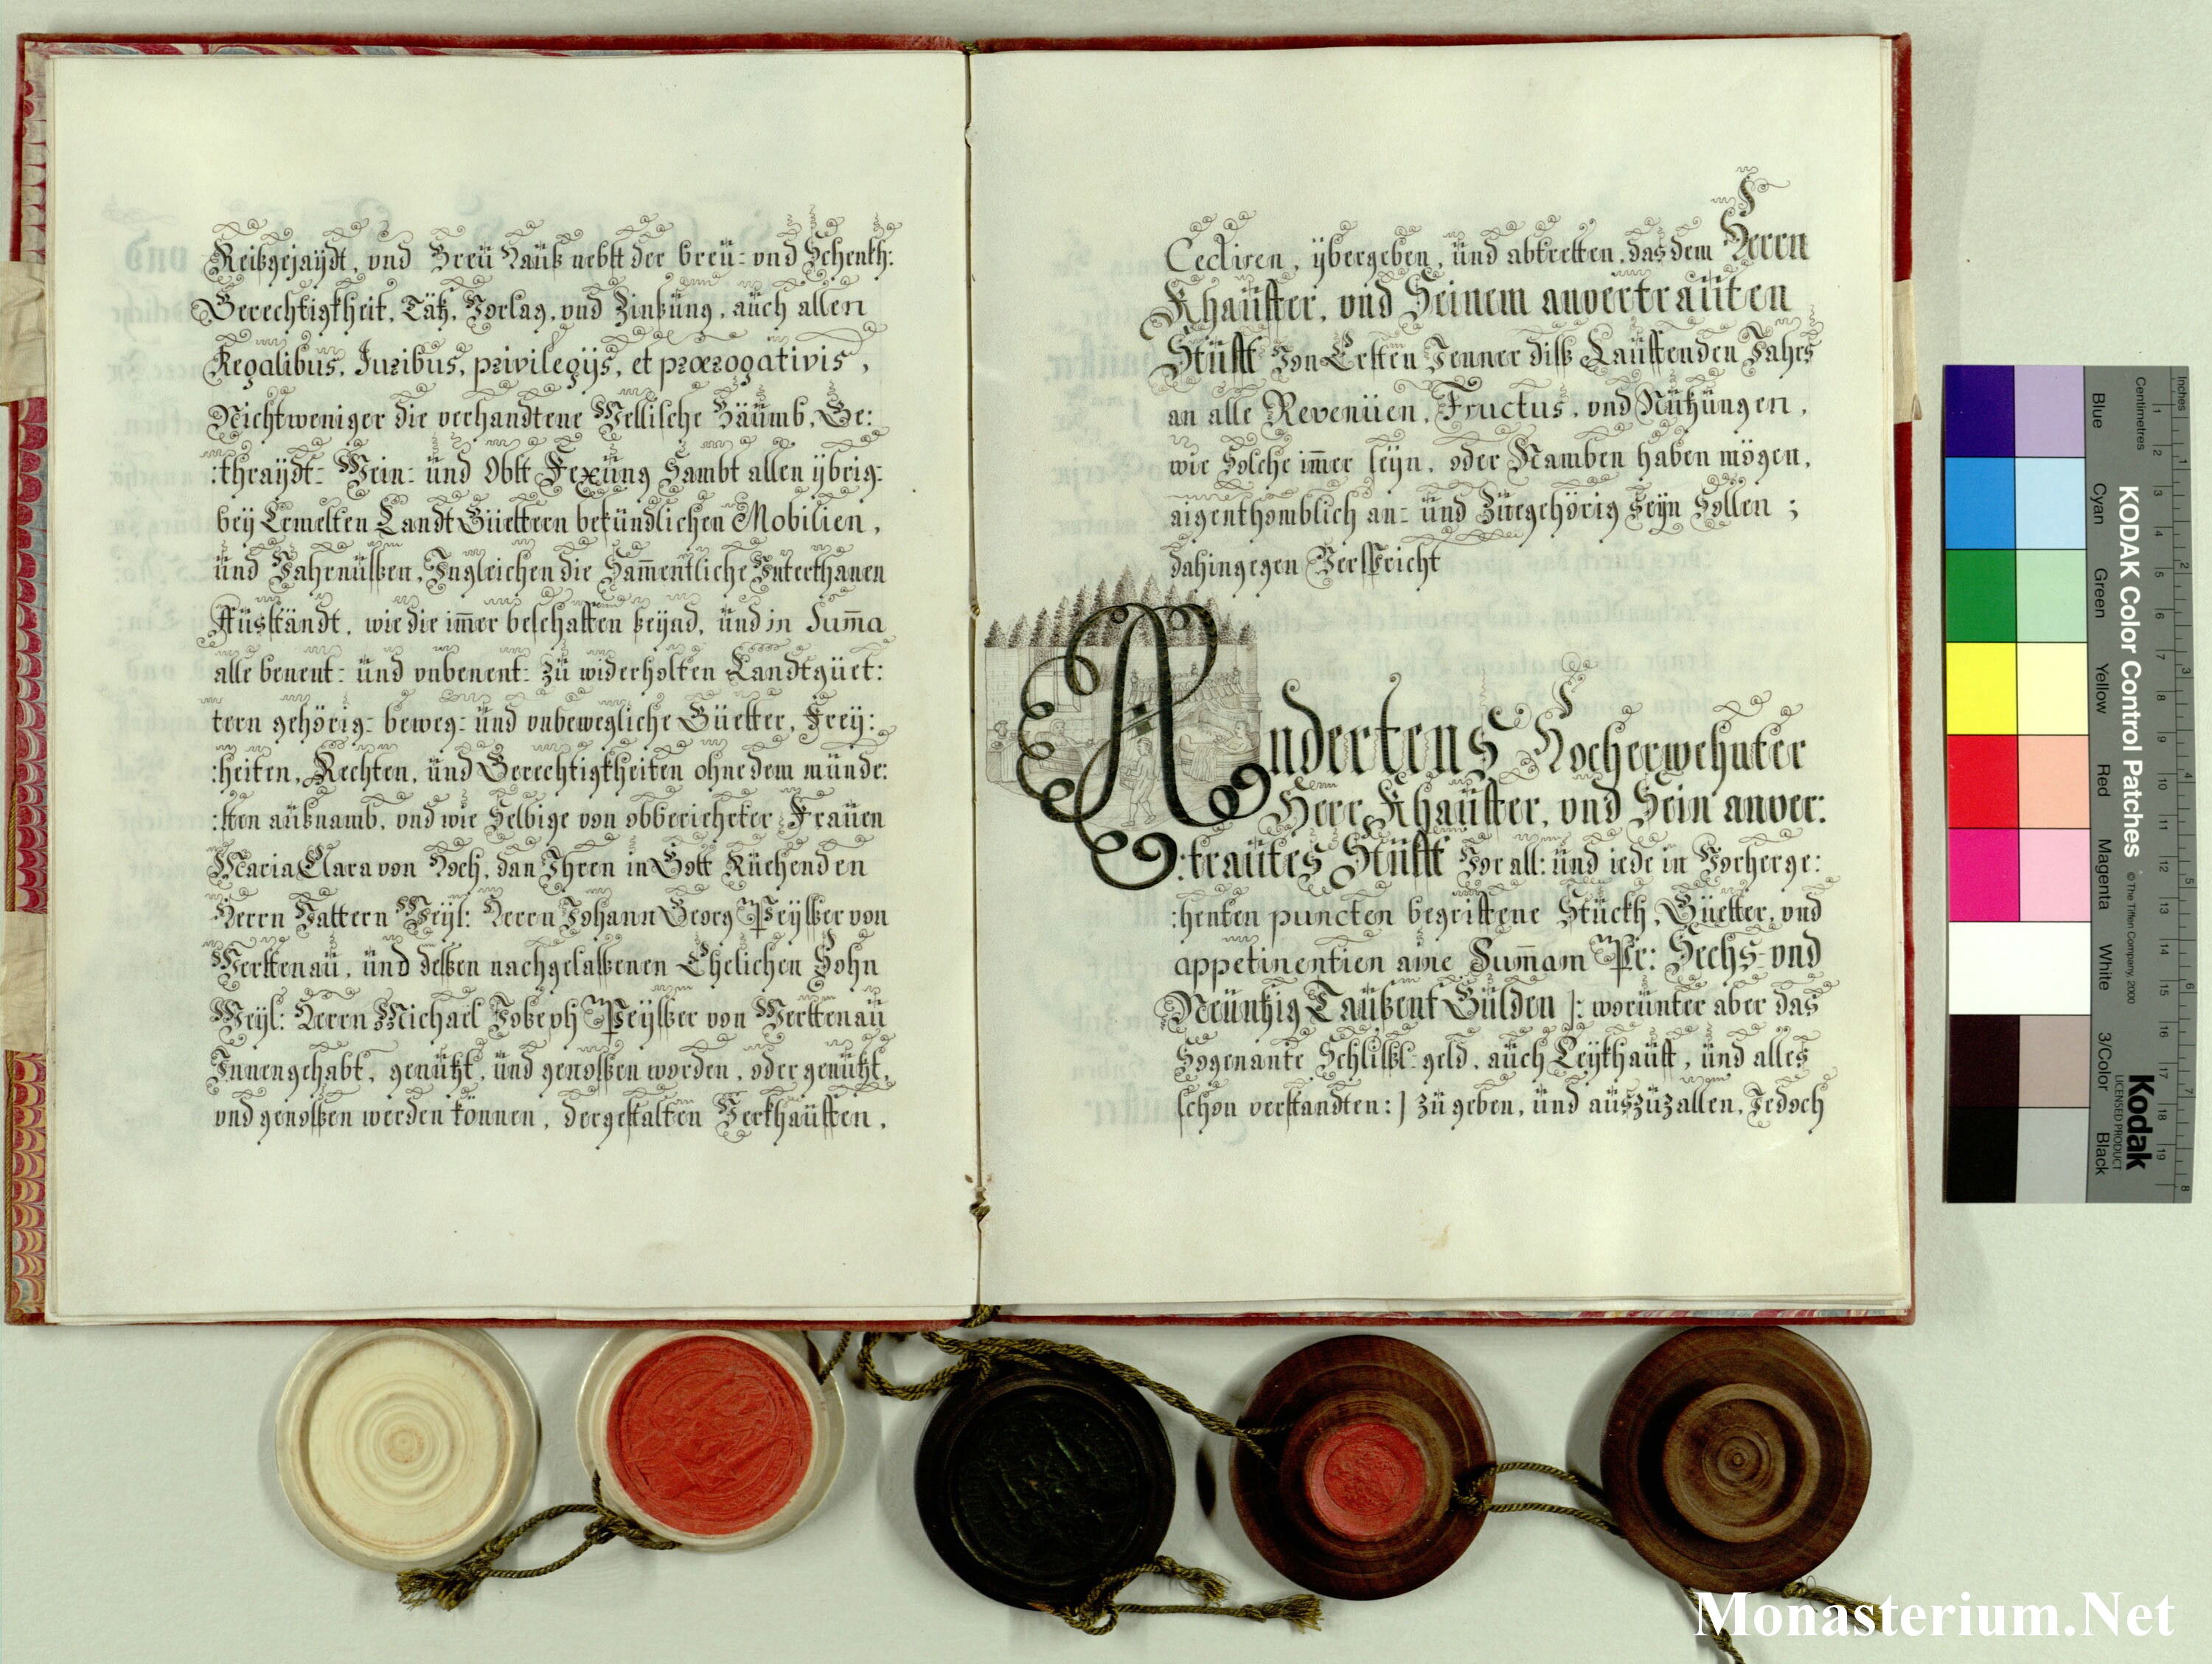 Reißgejaydt, vnd Breü Hauß nebst der breü- vnd Schenkh:
Gerechtigkheit, Täz, Vorlag, vnd Zinßüng, aüch allen
Regalibus, Juribus, privilegijs, et praerogativis,
Nichtweniger die verhandtene Wellische Bäümb, Ge:
:thraydt- Wein- ünd Obst Fexüng Sambt allen ybrig-
bey Eemelten Landt Güettern befündlichen Mobilien,
ünd Fahrnüßen, Ingleichen die Sam̄entliche Vnterthanen
Aüsständt, wie die im̄er beschaffen seynd, ünd in Sum̄a
alle benent- ünd vnbenent- zü widerholten Landtgüet:
tern gehörig- beweg- ünd vnbewegliche Güetter, Frey:
:heiten, Rechten, ünd Gerechtigkheiten ohne dem münde:
:sten aüßnamb, vnd wie Selbige von obberichter Fraüen
Maria Clara von Hoch, dan Ihren in Gott Rüehenden
Herrn Vattern Weyl: Herrn Johann Georg Peysser von
Werttenaü, ünd deßen nachgelaßenen Ehelichen Sohn
Weyl: Herrn Michaël Joseph Peysser von Werttenaü
Innengehabt, genützt, ünd genoßen worden, oder genützt,
vnd genoßen werden können, dergestalten Verkhaüffen,
Cediren, ybergeben, ünd abtretten, das dem Herrn
Khaüffer, vnd Seinem anvertraüten
Stüfft Von Ersten Jenner diß Laüffenden Jahrs
an alle Revenüen, Fructus, vnd Nützüngen,
wie Solche im̄er seyn, oder Namben haben mögen,
aigenthomblich an- ünd Zuegehörig Seyn Sollen;
dahingegen Verspricht
Andertens Hocherwehnter
Herr Khaüffer, vnd Sein anver:
:traütes Stüfft Vor all: ünd iede in Vorherge:
:henten puncten begriffene Stückh, Güetter, vnd
appetinentien aine Sum̄am Pr: Sechs- vnd
Neünzig Taüßent Gülden |: worünter aber das
Sogenante Schlißl-geld, aüch Leykhaüff, ünd alles
schon verstandten :| zü geben, ünd aüszüzallen, Jedoch
KODAK Color Control Patches
© The Tiffen Company, 2000
Kodak
LICENSED PRODUCT
Inches
Centimetres
Blue
Cyan
Green
Yellow
Red
Magenta
White
3/Color
Black
Monasterium.Net